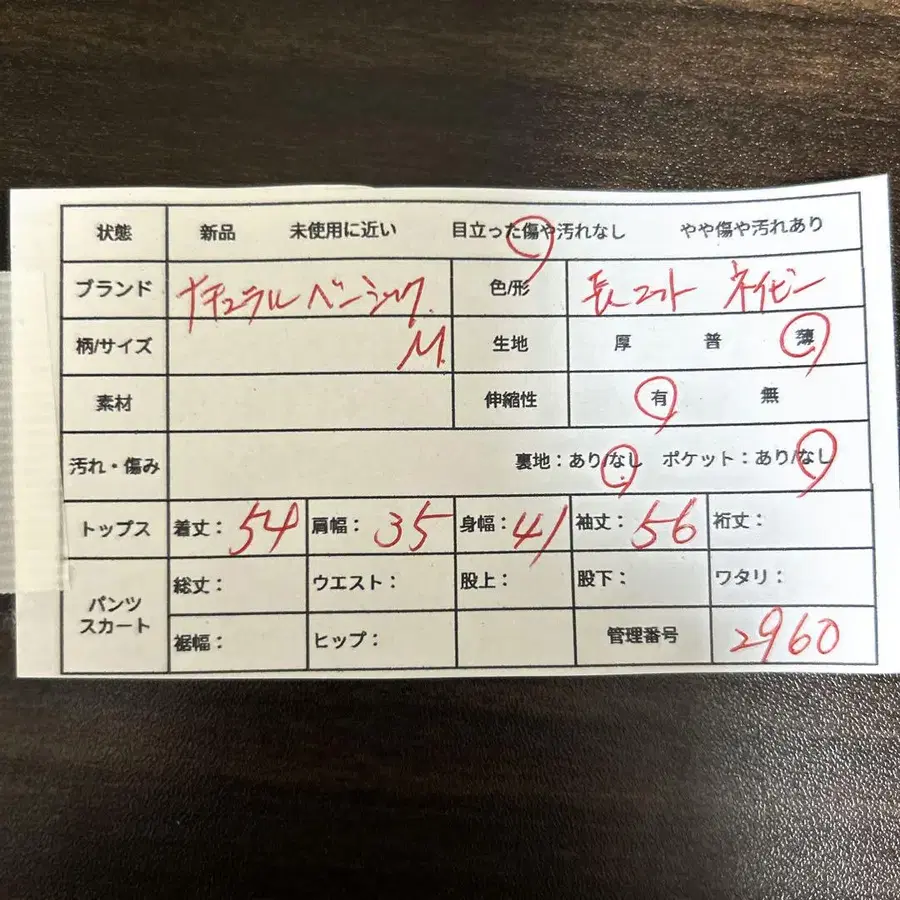 状態 新品 未使用に近い 目立った傷や汚れなし やや傷や汚れあり
ブランド ナチュラルベーシック 色/形 長コート ネイビー
柄/サイズ M 生地 厚 普 薄
素材 伸縮性 有 無
汚れ・傷み 裏地：あり/なし ポケット：あり/なし
トップス 着丈：54 肩幅：35 身幅：41 袖丈：56 裄丈：
パンツ スカート 総丈： ウエスト： 股上： 股下： ワタリ：
裾幅： ヒップ： 管理番号 2960